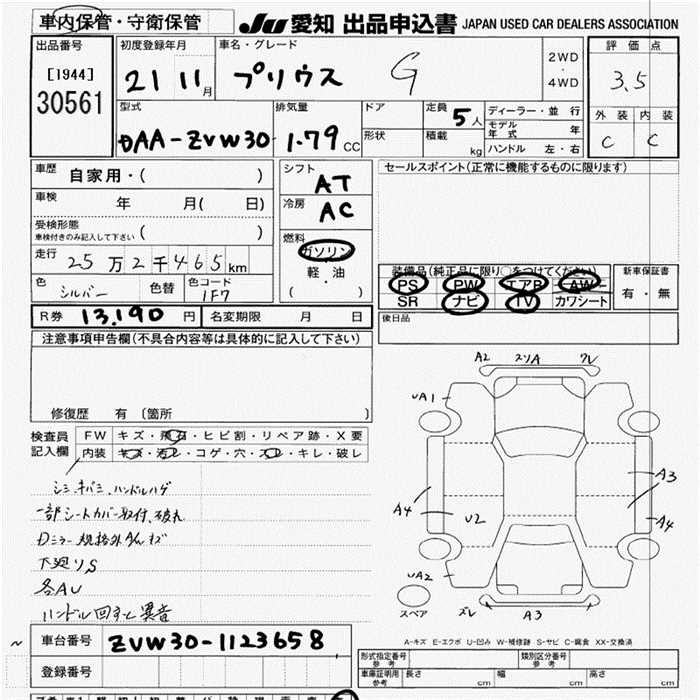 車内保管・守衛保管
JU 愛知 出品申込書 JAPAN USED CAR DEALERS ASSOCIATION
出品番号
[1944]
30561
初度登録年月
21 11月
車名・グレード
プリウス G
2WD
・
4WD
評価点
3.5
外装 内装
C C
型式
DAA-ZVW30
排気量
1.79 CC
ドア
形状
定員 5人
積載 kg
ディーラー・並行
モデル年式 年
ハンドル 左・右
車歴 自家用・( )
車検 年 月( 日)
受検形態
車検付きのみ記入して下さい ( )
走行 25万2千465km
色 シルバー 色替 色コード 1F7
シフト AT
冷房 AC
燃料
ガソリン
軽油
・
( )
セールスポイント(正常に機能するものに限ります)
装備品(純正品に限り○をつけてください)
PS PW エアB AW
SR ナビ TV カワシート
新車保証書
有・無
R券 13,190円 名変期限 月 日
後日品
注意事項申告欄(不具合内容等は具体的に記入して下さい)
修復歴 有 〔箇所 〕
検査員記入欄
FW キズ・飛石・ヒビ割・リペア跡・X要
内装 キズ・汚レ・コゲ・穴・スレ・キレ・破レ
シミ、キバミ、ハンドルハゲ
一部シートカバー取付、破れ
Dミラー規格外タイヤキズ
下廻りS
各AU
ハンドル回すと異音
A2 スリA ワレ
UA1
A4
U2
A3
A4
UA2
スペア
ズレ
A3
A-キズ E-エクボ U-凹み W-補修跡 S-サビ C-腐食 XX-交換済
車台番号 ZVW30-1123658
登録番号
型式指定番号 参考
類別区分番号 参考
車庫証明用 参考 長さ cm 幅 cm 高さ cm